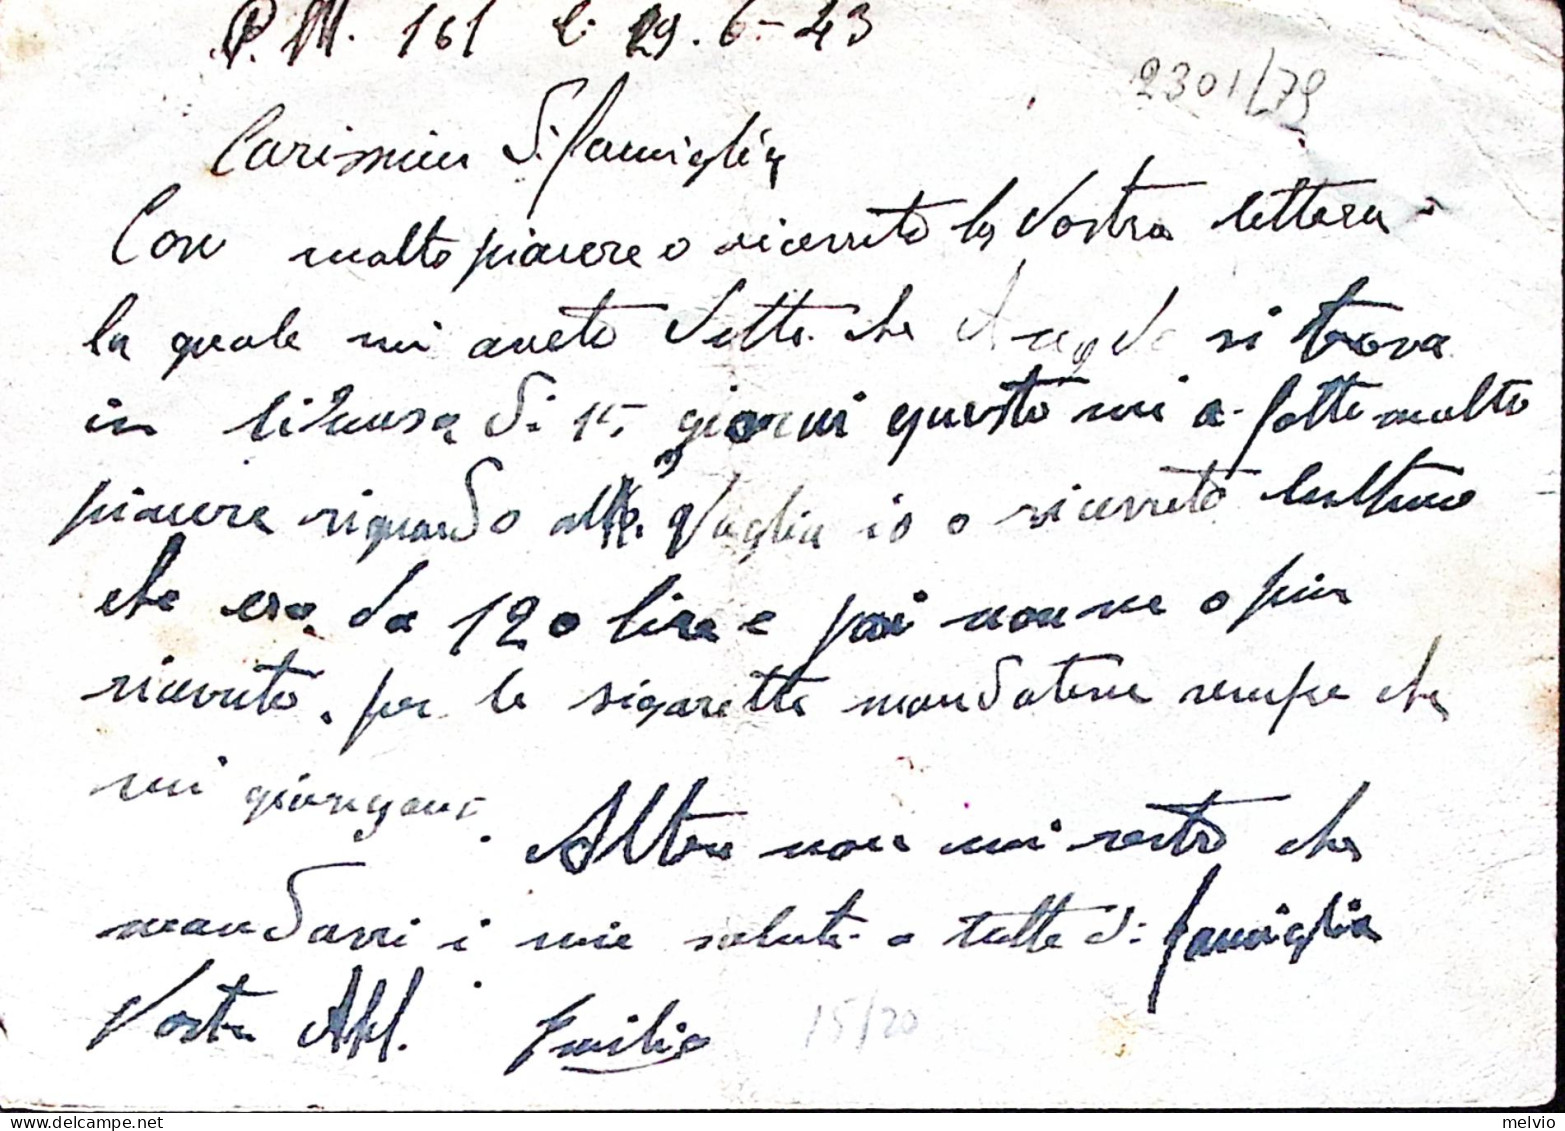 P.M. 161 li 29.6-43
2301/79
Carissimi di famiglia
Con molto piacere o ricevuto la vostra lettera
la quale mi avete detto che Angelo si trova
in licensa di 15 giorni questo mi a fatto molto
piacere riguardo alle Vaglia io o ricevuto lultimo
che era da 120 lire e poi non ne o piu
ricevuto. per le sigarette mandatene sempre che
mi giungano. Altro non mi resto che
mandarvi i mie saluti a tutte di famiglia
Vostr Aff. Emilio
15/20
melvio